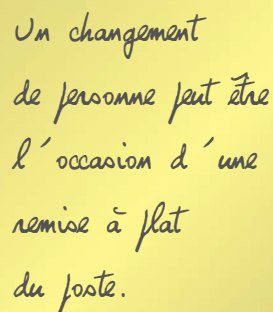 Un changement
de personne peut être
l'occasion d'une
remise à plat
du poste.